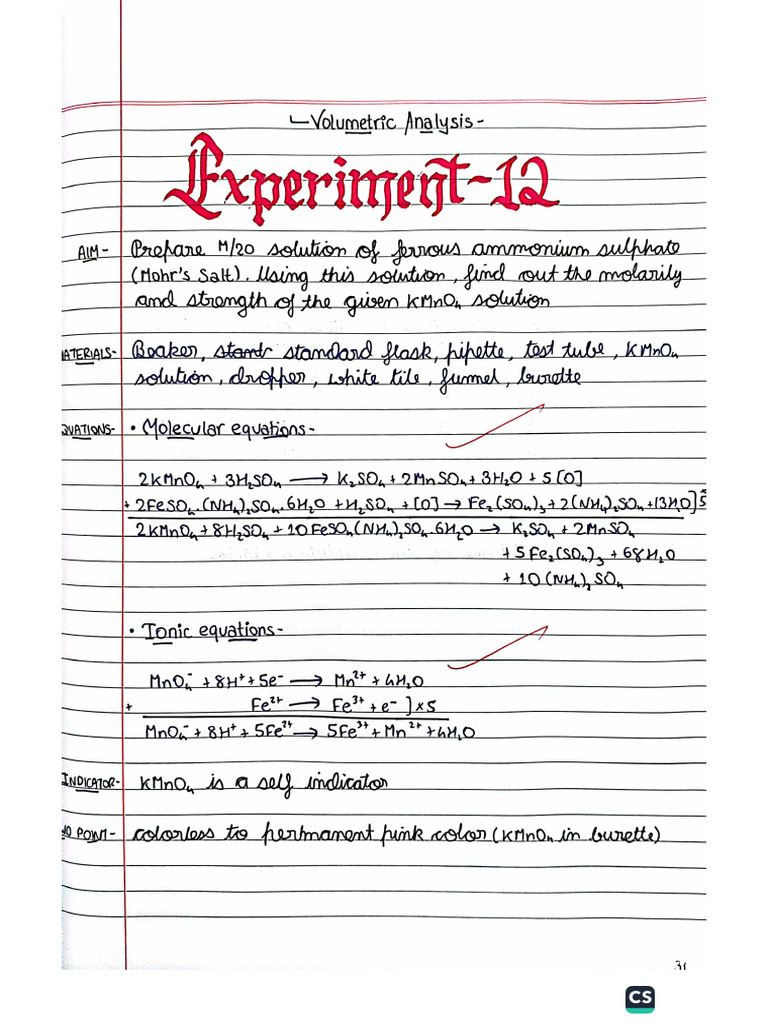 ↳Volumetric Analysis-
Experiment-12
AIM- Prepare M/20 solution of ferrous ammonium sulphate
(Mohr's Salt). Using this solution, find out the molarity
and strength of the given KMnO₄ solution
ATERIALS- Beaker, stand standard flask, pipette, test tube, KMnO₄
solution, dropper, white tile, funnel, burette
QUATIONS- • Molecular equations-
2KMnO₄ + 3H₂SO₄ → K₂SO₄ + 2MnSO₄ + 3H₂O + 5[O]
+ 2FeSO₄.(NH₄)₂SO₄.6H₂O + H₂SO₄ + [O] → Fe₂(SO₄)₃ + 2(NH₄)₂SO₄ + 13H₂O] × 5
2KMnO₄ + 8H₂SO₄ + 10FeSO₄(NH₄)₂SO₄.6H₂O → K₂SO₄ + 2MnSO₄
+ 5Fe₂(SO₄)₃ + 68H₂O
+ 10(NH₄)₂SO₄
• Ionic equations-
MnO₄⁻ + 8H⁺ + 5e⁻ → Mn²⁺ + 4H₂O
+ Fe²⁺ → Fe³⁺ + e⁻ ] × 5
MnO₄⁻ + 8H⁺ + 5Fe²⁺ → 5Fe³⁺ + Mn²⁺ + 4H₂O
INDICATOR- KMnO₄ is a self indicator
ND POINT- colorless to permanent pink color (KMnO₄ in burette)
31
CS